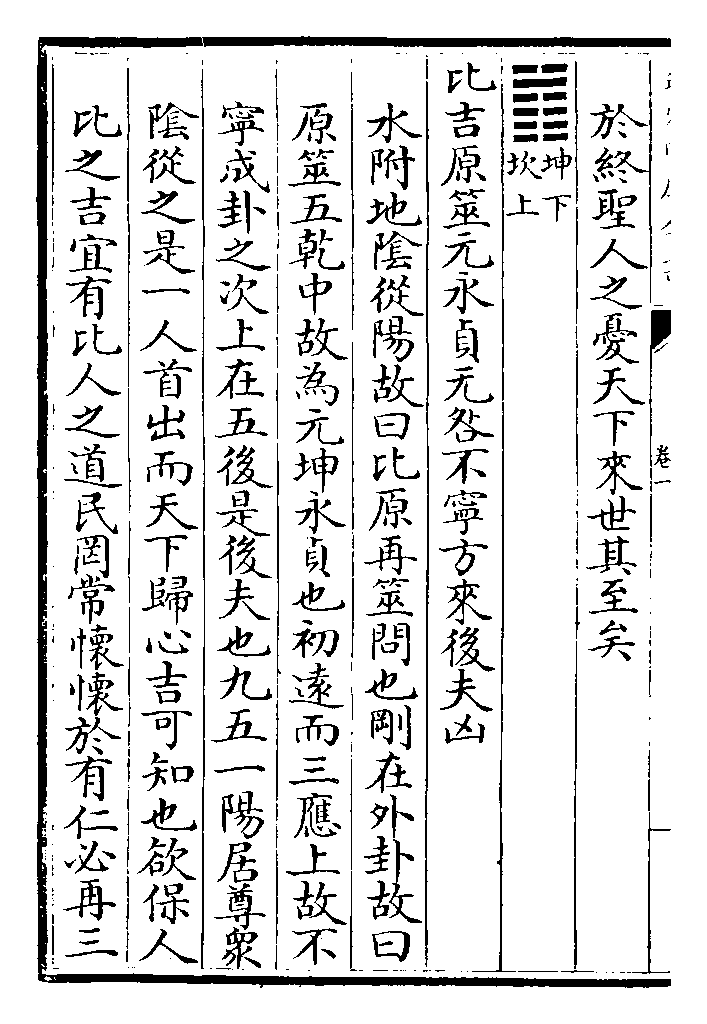 於終聖人之憂天下來世其至矣
坤下
坎上
比吉原筮元永貞无咎不寧方來後夫凶
水附地陰從陽故曰比原再筮問也剛在外卦故曰
原筮五乾中故為元坤永貞也初遠而三應上故不
寧成卦之次上在五後是後夫也九五一陽居尊衆
陰從之是一人首出而天下歸心吉可知也欲保人
比之吉宜有比人之道民罔常懷懷於有仁必再三
卷一